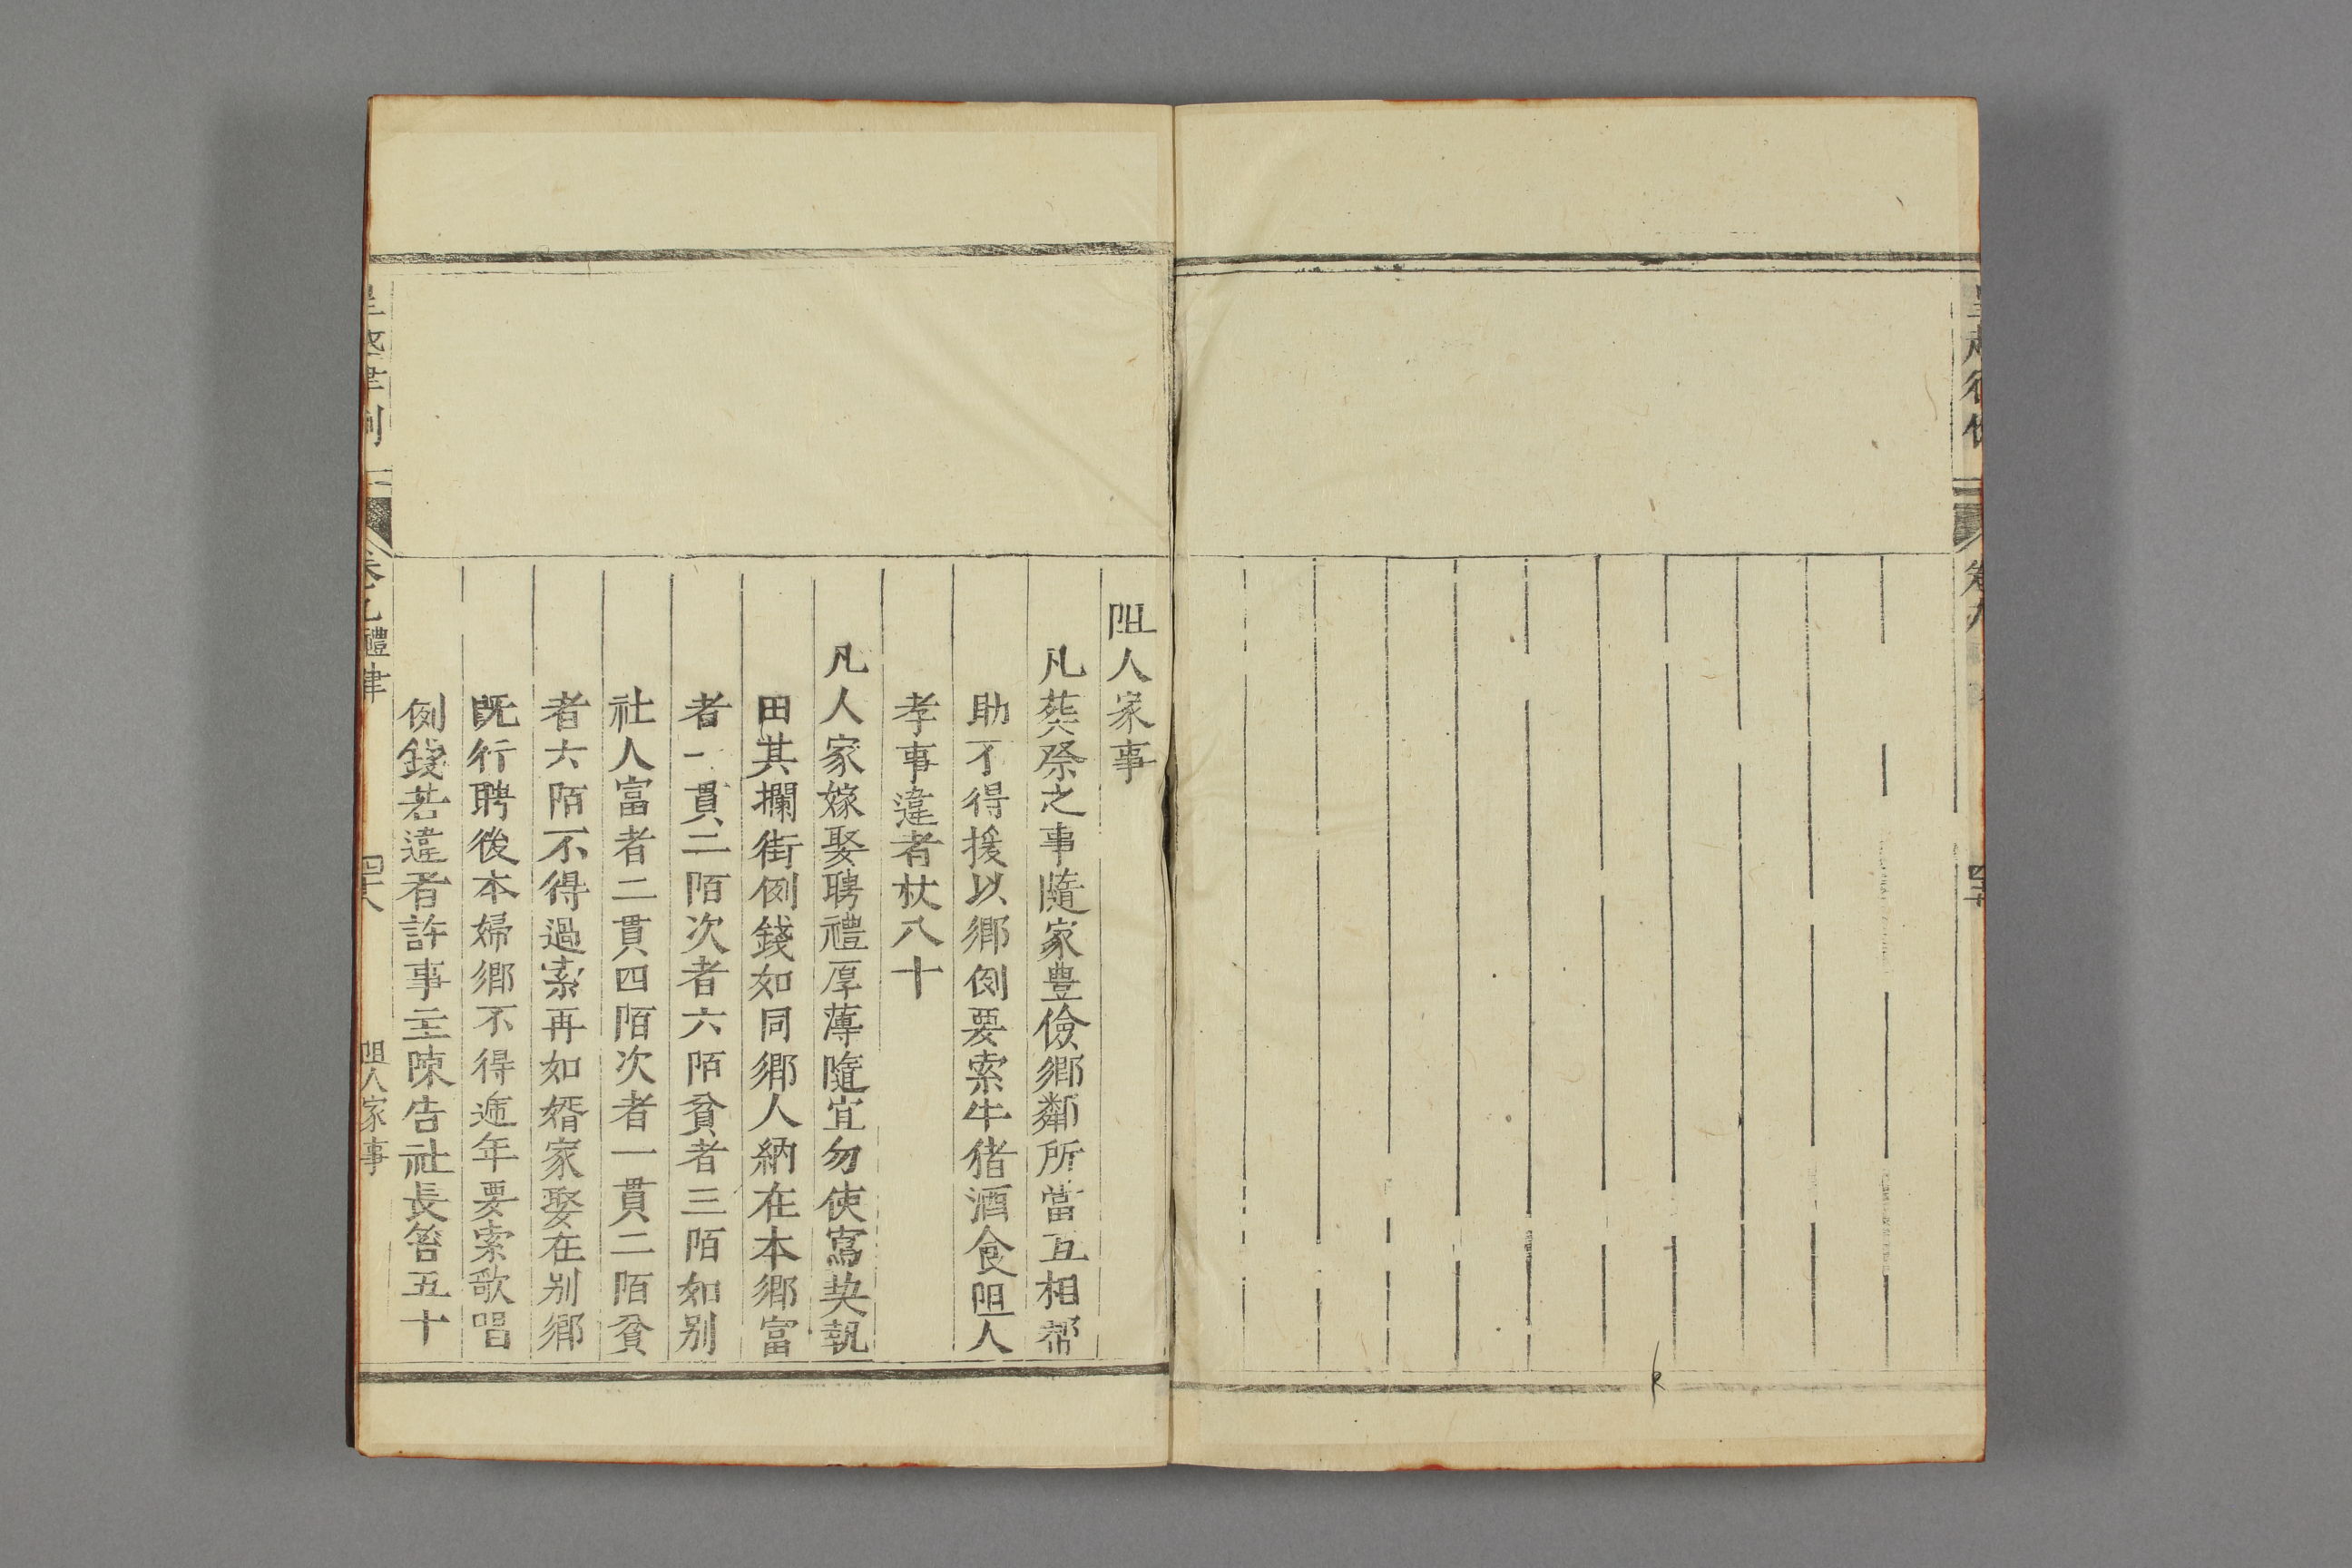 阻人家事
凡葬祭之事隨家豊儉鄉鄰所當互相帮
助不得援以鄉例要索牛猪酒食阻人
孝事違者杖八十
凡人家嫁娶聘禮厚薄隨宜勿使寫契執
田其攔街例錢如同鄉人納在本鄉富
者一貫二陌次者六陌貧者三陌如别
社人富者二貫四陌次者一貫二陌貧
者六陌不得過索再如婿家娶在别鄉
既行聘後本婦鄉不得遞年要索歌唱
例錢若違者許事主陳告社長笞五十
禮律
四十八
阻人家事